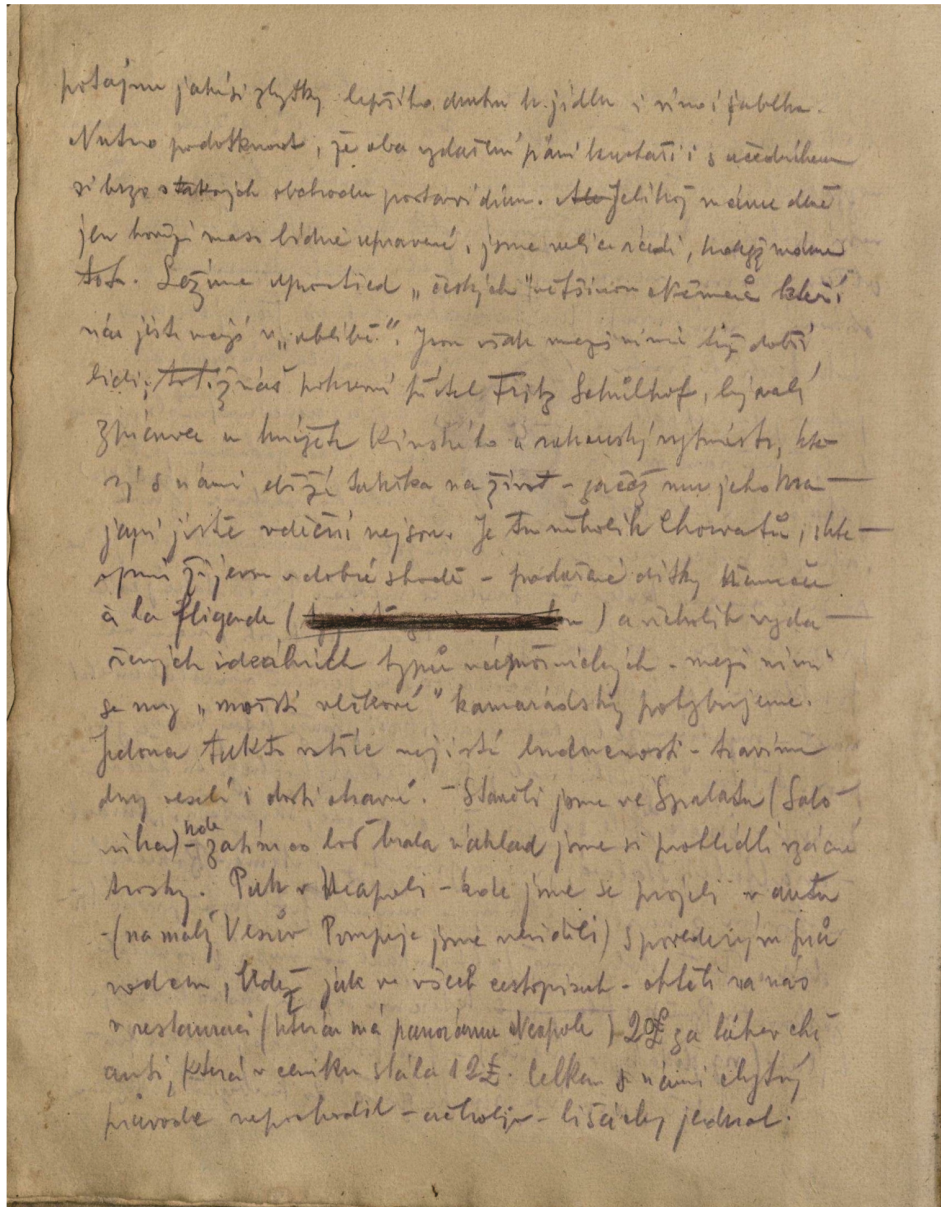 potajmu jakési zbytky lepšího druhu k jídlu i víno i jablka.
Nutno podotknout, že oba zdařilí páni kuchaři i s učedníkem
si brzo s takových obchodů postaví dům. Ale Jelikož máme dně
jen hovězí maso bídně upravené, jsme velice rádi, když máme
toto. Ležíme uprostřed „českých" většinou Němců kteří
nás jistě mají v „oblibě". Jsou však mezi nimi též dobří
lidi, totiž náš pokorní přítel Fritz Schülhof, bývalí
zpěvák u knížete Kinského a rakouský rytmistr, kte-
rý s námi drží takřka na život – začež mu jeho kra-
jani jistě vděční nejsou. Je tu několik Chorvatů, s kte-
rými žijeme v dobré shodě – podařené dítky
à la fligade ( ) a několik vyda-
řených ideálních typů – mezi nimi
se my „mořští vlkové" kamarádsky pohybujeme.
Jedona takto vstříc nejisté budoucnosti – trávíme
dny veselé i dosti chmurné. – Stavěli jsme ve Spalatu (Salo-
nika) – kde zatím co loď brala náklad jsme si prohlédli vzácné
trosky. Pak v Neapoli – kde jsme se projeli v autu
– (na malý Vesuv Pompeje jsme neviděli) s povedeným prů
vodcem, kdež jak ve všech cestopisech – chtěli na nás
v restauraci (kterou má panoráma Neapole) 20£ za láhev chi
anti, která v ceníku stála 12£. Celkem s námi chytrý
průvodce nepochodil – ačkoliv – lišácky jednal.